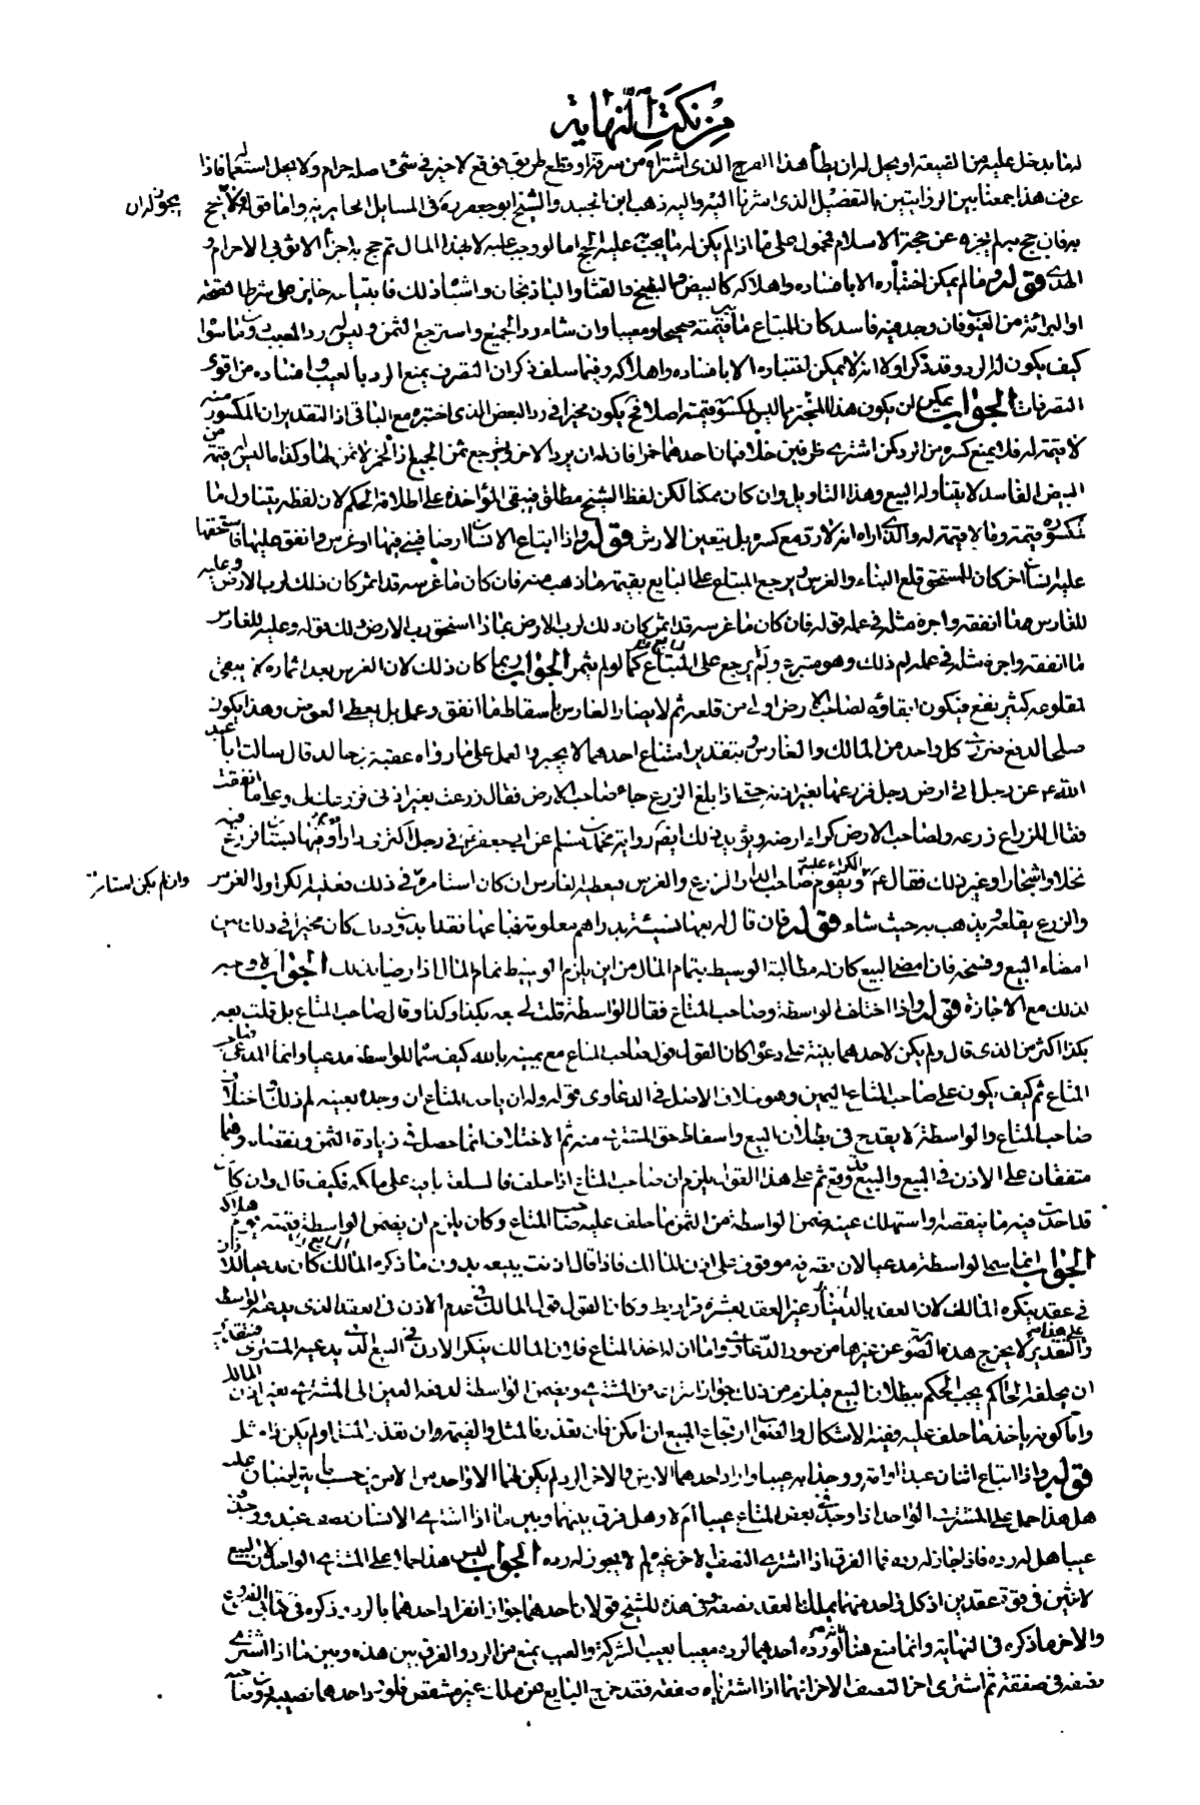 من نكت النهاية
له ما يدخل عليه من الضيعة او يحل له ان يطأ هذا الفرج الذى اشتراه من سرقة او قطع طريق فوقع لا خير فى شىء اصله حرام ولا يحل استعماله فاذا
عرفت هذا جمعنا بين الروايتين بالتفصيل الذى اشرنا اليه واليه ذهب ابن الجنيد والشيخ ابو جعفر ره فى المسايل الحايرية واما قوله ولا يحج
يجوز له ان
به فان حج به لم يجزه عن حجة الاسلام فمحمول على ما اذا لم يكن له ما يجب به عليه الحج اما لو وجب عليه لا بهذا المال ثم حج به اجزأ الا ثوبى الاحرام و
الهدى قوله وما لم يمكن اختباره الا بافساده واهلاكه كالبيض والبطيخ والقثا والباذنجان واشباه ذلك فابتياعه جايز على شرط الصحة
او البرائة من العيوب فان وجد فيه فاسد كان للمبتاع ما بين قيمته صحيحا ومعيبا وان شاء رد الجميع واسترجع الثمن وليس له رد المعيب دون ما سواه
كيف يكون له الرد وقد ذكر اولا انه لا يمكن اختباره الا بافساده واهلاكه وفيما سلف ذكر ان التصرف يمنع الرد بالعيب وافساده من اقوى
التصرفات الجواب يمكن ان يكون هذا للتخيير بما ليس لمكسوره قيمة اصلا فحـ يكون مخيرا فى رد البعض الذى اختبره مع الباقى اذ التقدير ان المكسور منه
لا قيمة له فلا يمنع كسره من الرد كمن اشترى ظرفين خلا فبان احدهما خمرا فان له ان يرد الاخر ويسترجع ثمن الجميع اذ الخمر لا ثمن لها وكذا ما ليس له قيمة من
البيض الفاسد لا يتناوله البيع وهذا التاويل وان كان ممكنا لكن لفظ الشيخ مطلق فيبقى المؤاخذة على اطلاقه الحكم لان لفظه يتناول ما
لمكسوره قيمة وما لا قيمة له والذى اراه انه لا رد مع كسره بل يتعين الارش قوله واذا ابتاع الانسان ارضا فبنى فيها او غرس وانفق عليها فاستحقها
عليه انسان اخر كان للمستحق قلع البناء والغرس ويرجع المبتاع على البايع بقيمة ما ذهب منه فان كان ما غرسه قد اثمر كان ذلك لرب الارض وعليه
للغارس ما انفقه واجرة مثله فى عمله قوله فان كان ما غرسه قد اثمر كان ذلك لرب الارض بماذا استحق رب الارض ذلك وقوله وعليه للغارس
ما انفقه واجرة مثله فى عمله لم ذلك وهو متبرع ولم لم يرجع على البايع كما لو لم يثمر الجواب ربما كان ذلك لان الغرس بعد اثماره لم يبق
لمقلوعه كثير نفع فيكون ابقاؤه لصاحب الارض اولى من قلعه ثم لا يضار الغارس باسقاط ما انفق وعمل بل يعطى العوض وهذا يكون
صلحا لدفع ضرر كل واحد من المالك والغارس وبتقدير امتناع احدهما لا يجبر والعمل على ما رواه عقبة بن خالد قال سالت ابا عبد
الله ع عن رجل اتى ارض رجل فزرعها بغير اذنه حتى اذا بلغ الزرع جاء صاحب الارض فقال زرعت بغير اذنى فزرعك لى وعلى ما انفقت
فقال للزارع زرعه ولصاحب الارض كراء ارضه ويؤيد ذلك ايضا رواية محمد بن مسلم عن ابى جعفر ع فى رجل اكترى دارا وفيها بستان فزرع فيه
نخلا واشجارا وغير ذلك فقال عليه الكراء ويقوم صاحب الدار الزرع والغرس فيعطيه الغارس ان كان استامره فى ذلك فعليه الكراء وله الغرس
وان لم يكن استامره
والزرع يقلعه ويذهب به حيث شاء قوله فان قال له بعها نسيئة بدراهم معلومة فباعها نقدا بدون ذلك كان مخيرا فى ذلك بين
امضاء البيع وفسخه فان امضى البيع كان له مطالبة الوسيط بتمام المال من اين يلزم الوسيط تمام المال اذا رضى بذلك الجواب لا وجه
لذلك مع الاجازة قوله واذا اختلف الواسطة وصاحب المتاع فقال الواسطة قلت لى بعه بكذا وكذا وقال صاحب المتاع بل قلت بعه
بكذا اكثر من الذى قال ولم يكن لاحدهما بينة على دعواه كان القول قول صاحب المتاع مع يمينه بالله كيف سما الواسطة مدعيا وانما المدعى صاحب
المتاع ثم كيف يكون على صاحب المتاع اليمين وهو خلاف الاصل فى الدعاوى قوله وله ان ياخذ المتاع ان وجده بعينه لم ذلك واختلاف
صاحب المتاع والواسطة لا يقدح فى بطلان البيع واسقاط حق المشترى منه ثم الاختلاف انما حصل فى زيادة الثمن ونقصانه وهما
متفقان على الاذن فى البيع والبيع قد وقع ثم على هذا القول يلزم ان صاحب المتاع اذا حلف فالسلعة باقية على ملكه فكيف قال وان كان
قد احدث فيه ما ينقصه او استهلك عينه ضمن الواسطة من الثمن ما حلف عليه صاحب المتاع وكان يلزم ان يضمن الواسطة قيمته يوم هلاكه
الجواب انما سمى الواسطة مدعيا لان بيعه موقوف على اذن المالك فاذا قال اذنت ببيعه بدون ما ذكره المالك كان مدعيا للاذن
فى عقد ينكره المالك لان العقد بالدينار غير العقد بعشرة قراريط وكان القول قول المالك فى عدم الاذن فى العقد الذى يدعيه الواسطة
والتقدير لا يخرج هذه الصورة عن غيرها من صور الدعاوى واما ان له اخذ المتاع فلان المالك ينكر الاذن فى البيع الذى يدعيه المشترى
ان يحلفه الحاكم يجب الحكم ببطلان البيع فيلزم من ذلك جواز انتزاعه من المشترى ويضمن الواسطة لدفعه العين الى المشترى بغير اذن المالك
واما كونه ياخذ ما حلف عليه ففيه الاشكال والصواب ارتجاع المبيع ان امكن فان تعذر فالمثل او القيمة وان تعذر المثل او لم يكن ذا مثل
قوله واذا ابتاع اثنان عبدا او امة ووجدا به عيبا واراد احدهما الارش والاخر الرد لم يكن لهما الا واحد من الامرين حسبما يتراضيان عليه
هل هذا حمل على المشترى الواحد اذا وجد فى بعض المتاع عيبا ام لا وهل فرق بينهما وبين ما اذا اشترى الانسان نصف عبد ووجد به
عيبا هل له رده فاذا جاز له رده فما الفرق اذا اشترى النصف الاخر غيره لم لا يجوز له رده الجواب ليس هذا حملا على المشترى الواحد لان البيع
لاثنين فى قوة عقدين اذ كل واحد منهما يملك بالعقد نصفه وفى هذه للشيخ قولان احدهما جواز انفراد احدهما بالرد ذكره فى كتابى الفروع
والاخر ما ذكره فى النهاية وانما منع هنا لانه لو رده احدهما لرده معيبا بعيب الشركة والعيب يمنع من الرد والفرق بين هذه وبين ما اذا اشترى
نصفه فى صفقة ثم اشترى اخر النصف الاخر انهما اذا اشترياه صفقة فقد خرج البايع عن ملك غير مشقص فلو رد احدهما نصيبه